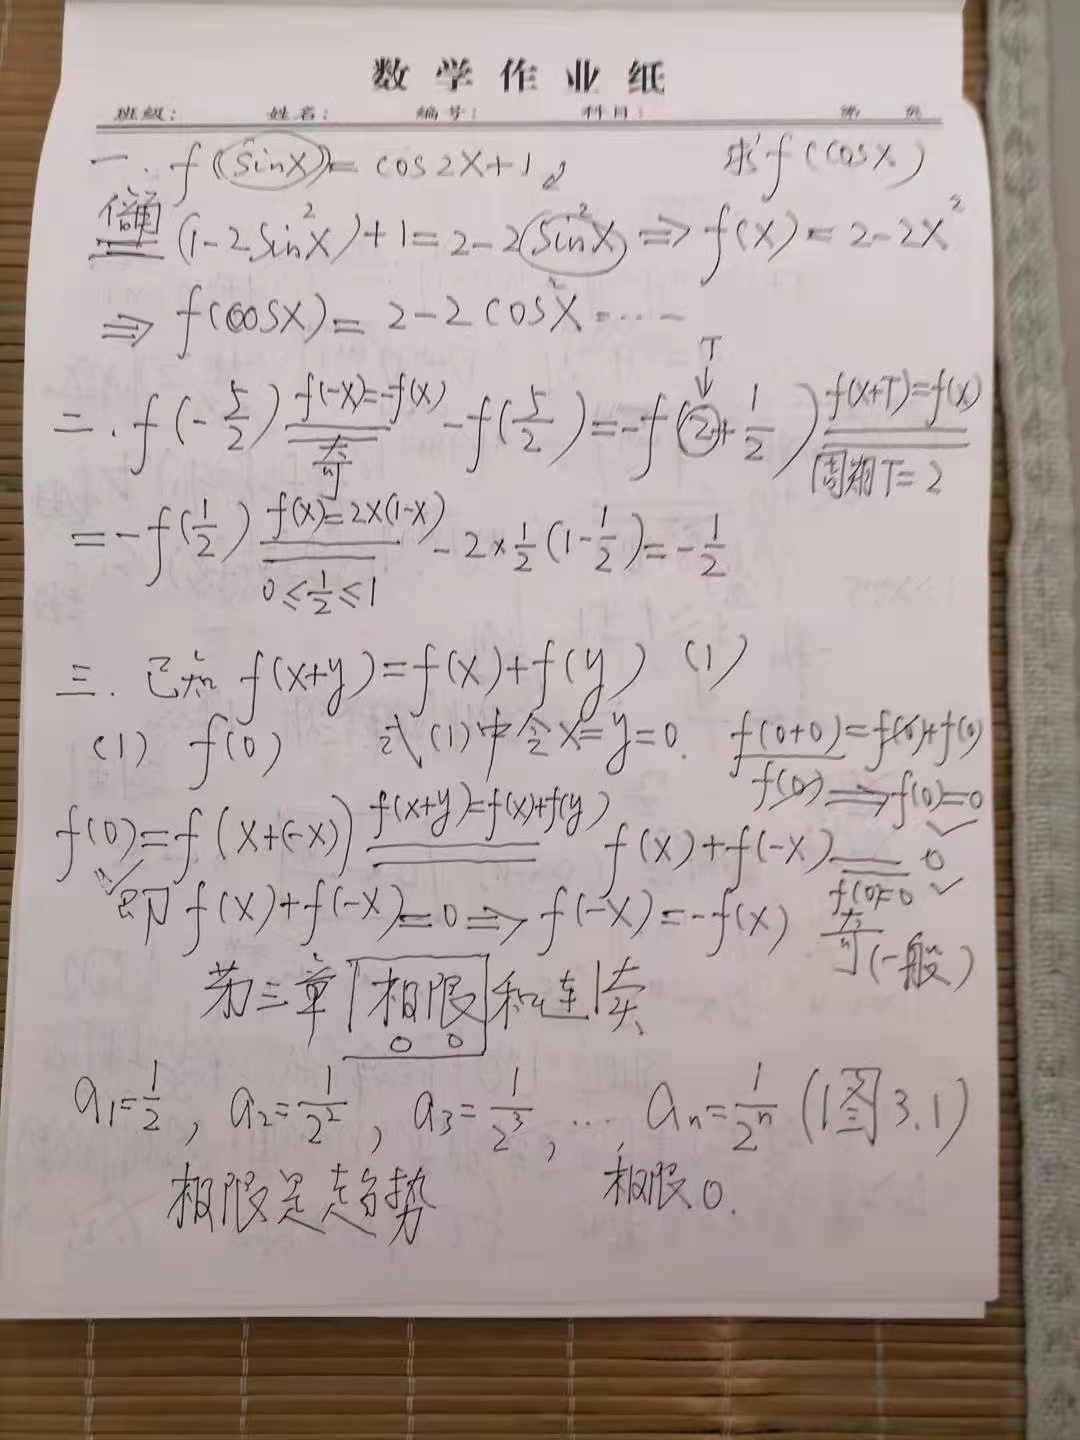 数学作业纸
班级： 姓名： 编号： 科目： 第 页
一. f(sinx)=cos2x+1 求f(cosx)
倍角 (1-2sin²x)+1=2-2sin²x ⇒ f(x)=2-2x²
⇒ f(cosx)=2-2cos²x……
T
二. f(-5/2) f(-x)=-f(x) 奇 -f(5/2)=-f(2+1/2) f(x+T)=f(x) 周期T=2
=-f(1/2) f(x)=2x(1-x) 0≤1/2≤1 -2×1/2(1-1/2)=-1/2
三. 已知 f(x+y)=f(x)+f(y) (1)
(1) f(0) 式(1)中令x=y=0. f(0+0)=f(0)+f(0)
f(0) ⇒ f(0)=0
f(0)=f(x+(-x)) f(x+y)=f(x)+f(y) f(x)+f(-x) f(0)=0 0
即 f(x)+f(-x)=0 ⇒ f(-x)=-f(x) 奇(一般)
第三章 极限和连续
a₁=1/2, a₂=1/2², a₃=1/2³, …, aₙ=1/2ⁿ (图3.1)
极限是趋势 极限0.